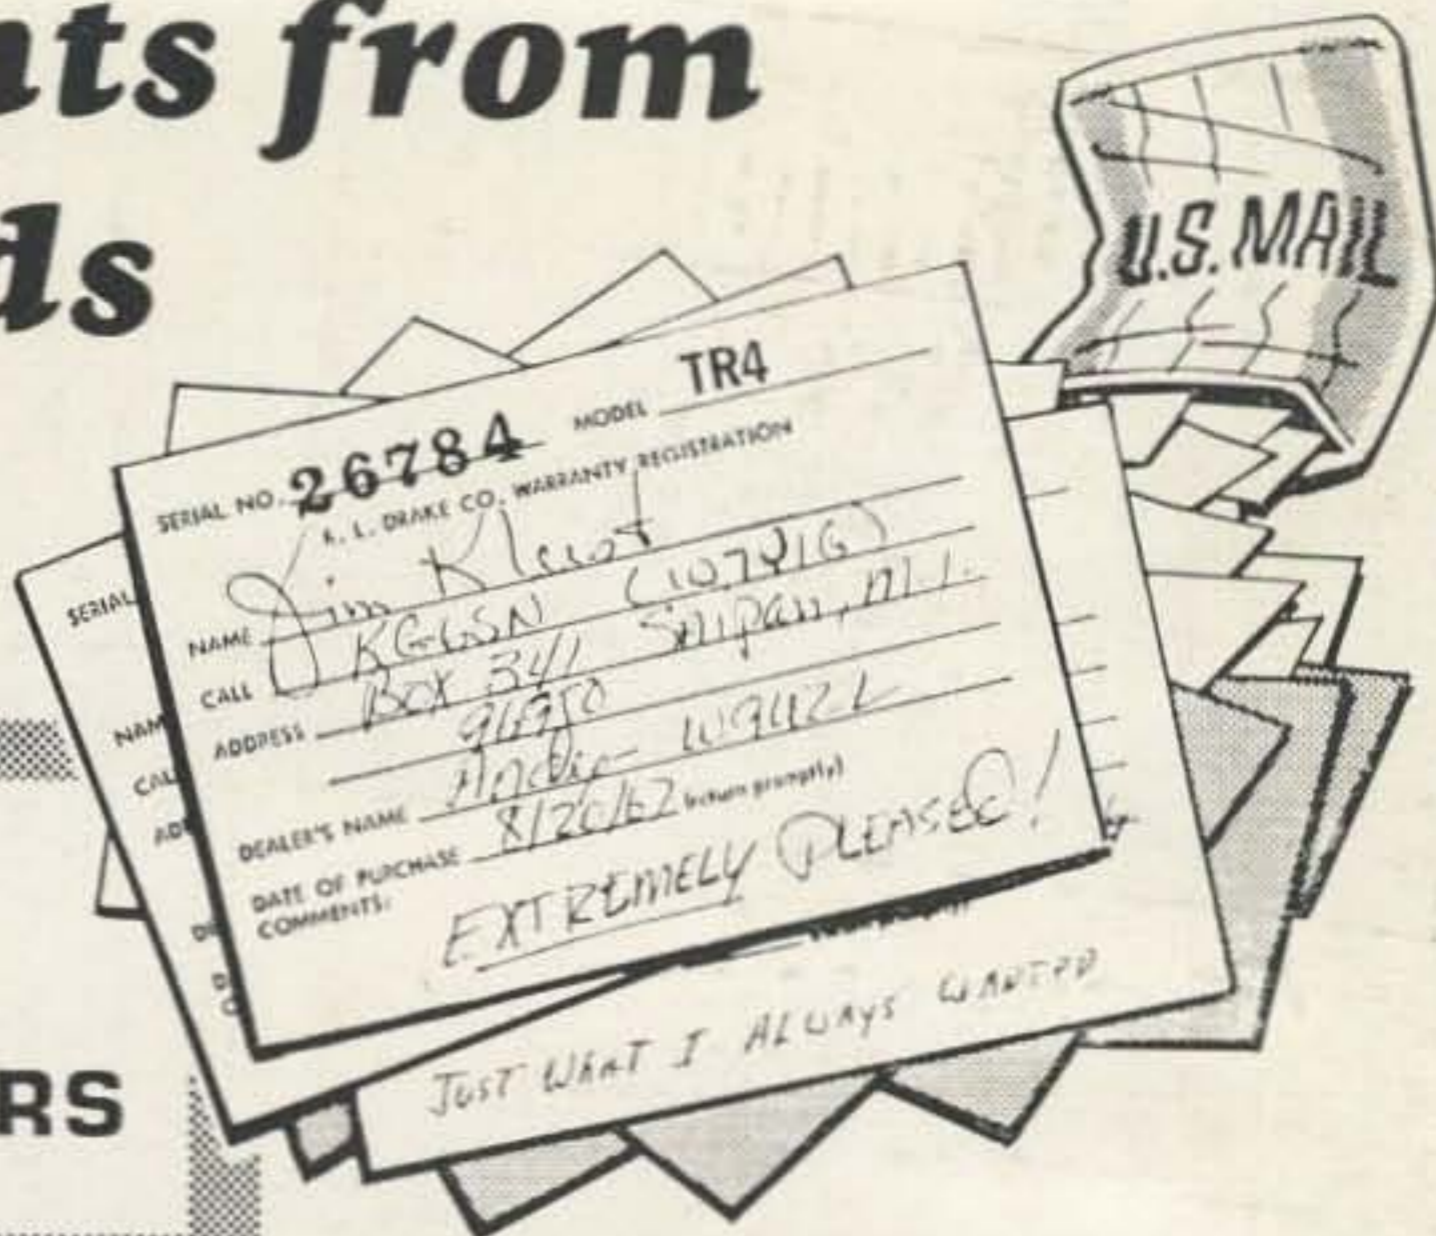 nts from
ds
U.S. MAIL
SERIAL NO. 26784 MODEL TR4
R. L. DRAKE CO. WARRANTY REGISTRATION
NAME Jim
CALL KG6SN (W7VIG)
ADDRESS BOX 341 Saipan, M.I.
DEALER'S NAME W9UZL
DATE OF PURCHASE (return promptly)
COMMENTS: EXTREMELY PLEASED!
SERIAL
NAM
CAL
AD
JUST WHAT I ALWAYS WANTED
RS